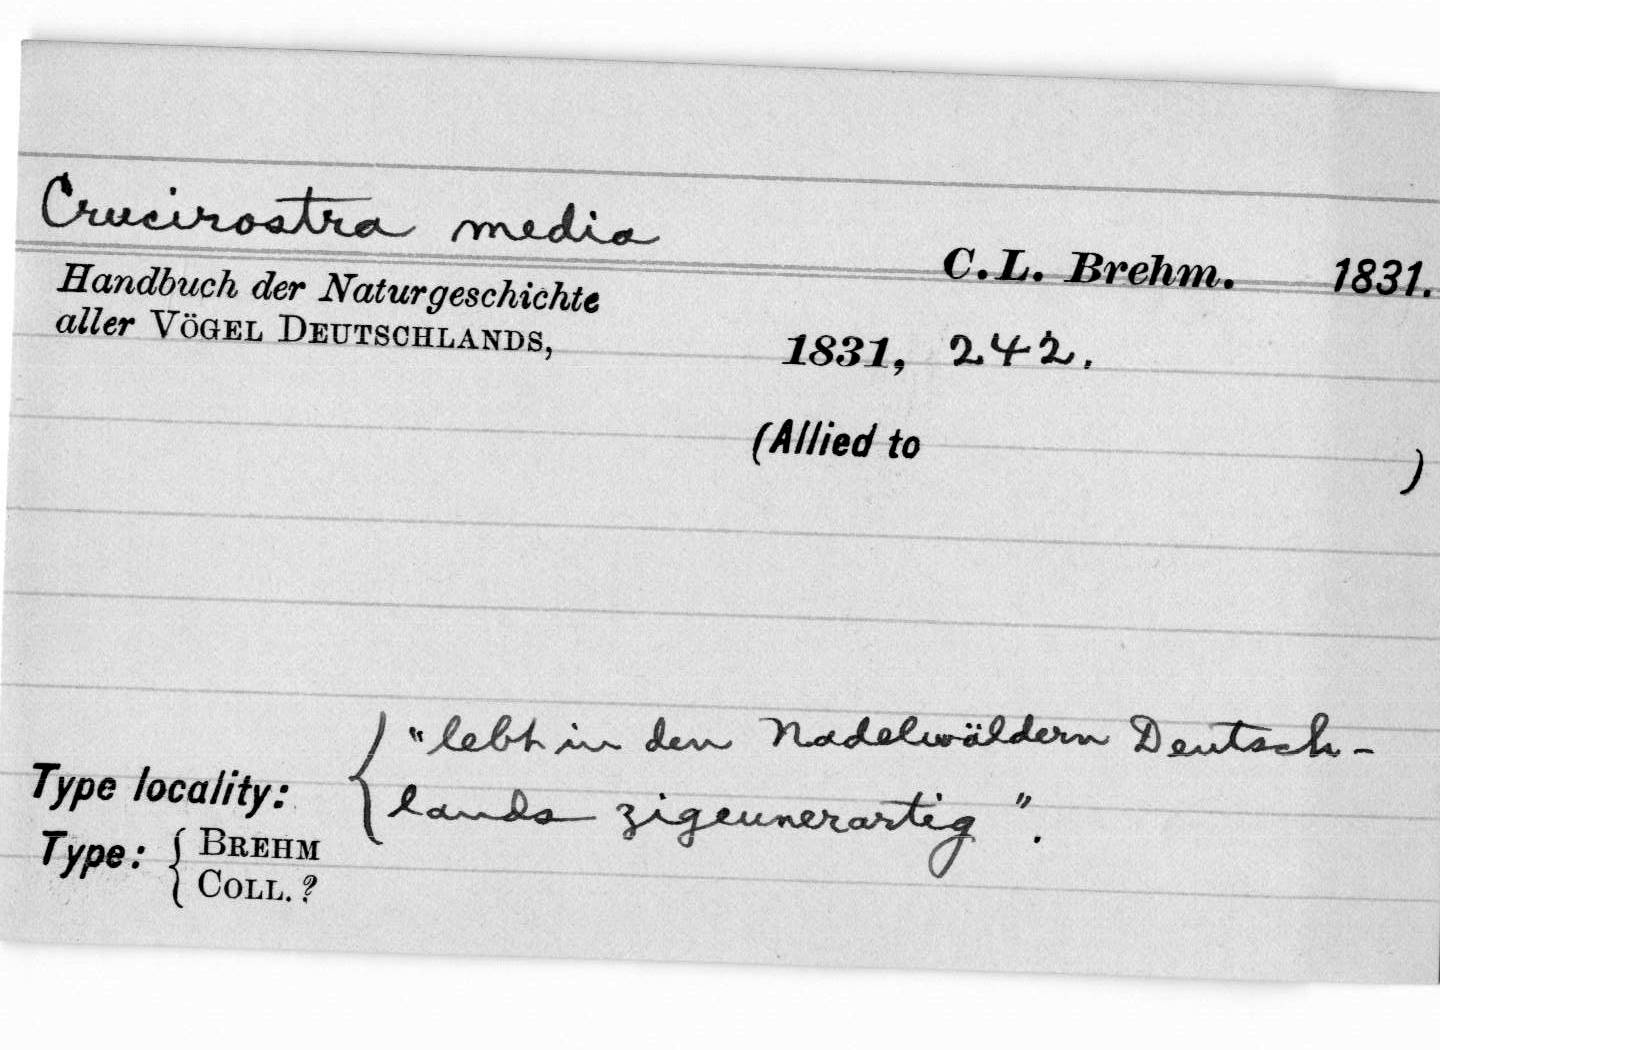 Crucirostra media
C.L. Brehm. 1831.
Handbuch der Naturgeschichte
aller VÖGEL DEUTSCHLANDS,
1831, 242.
(Allied to )
"lebt in den Nadelwäldern Deutsch-
Type locality:
lands zigeunerartig".
Type: { BREHM
COLL. ?